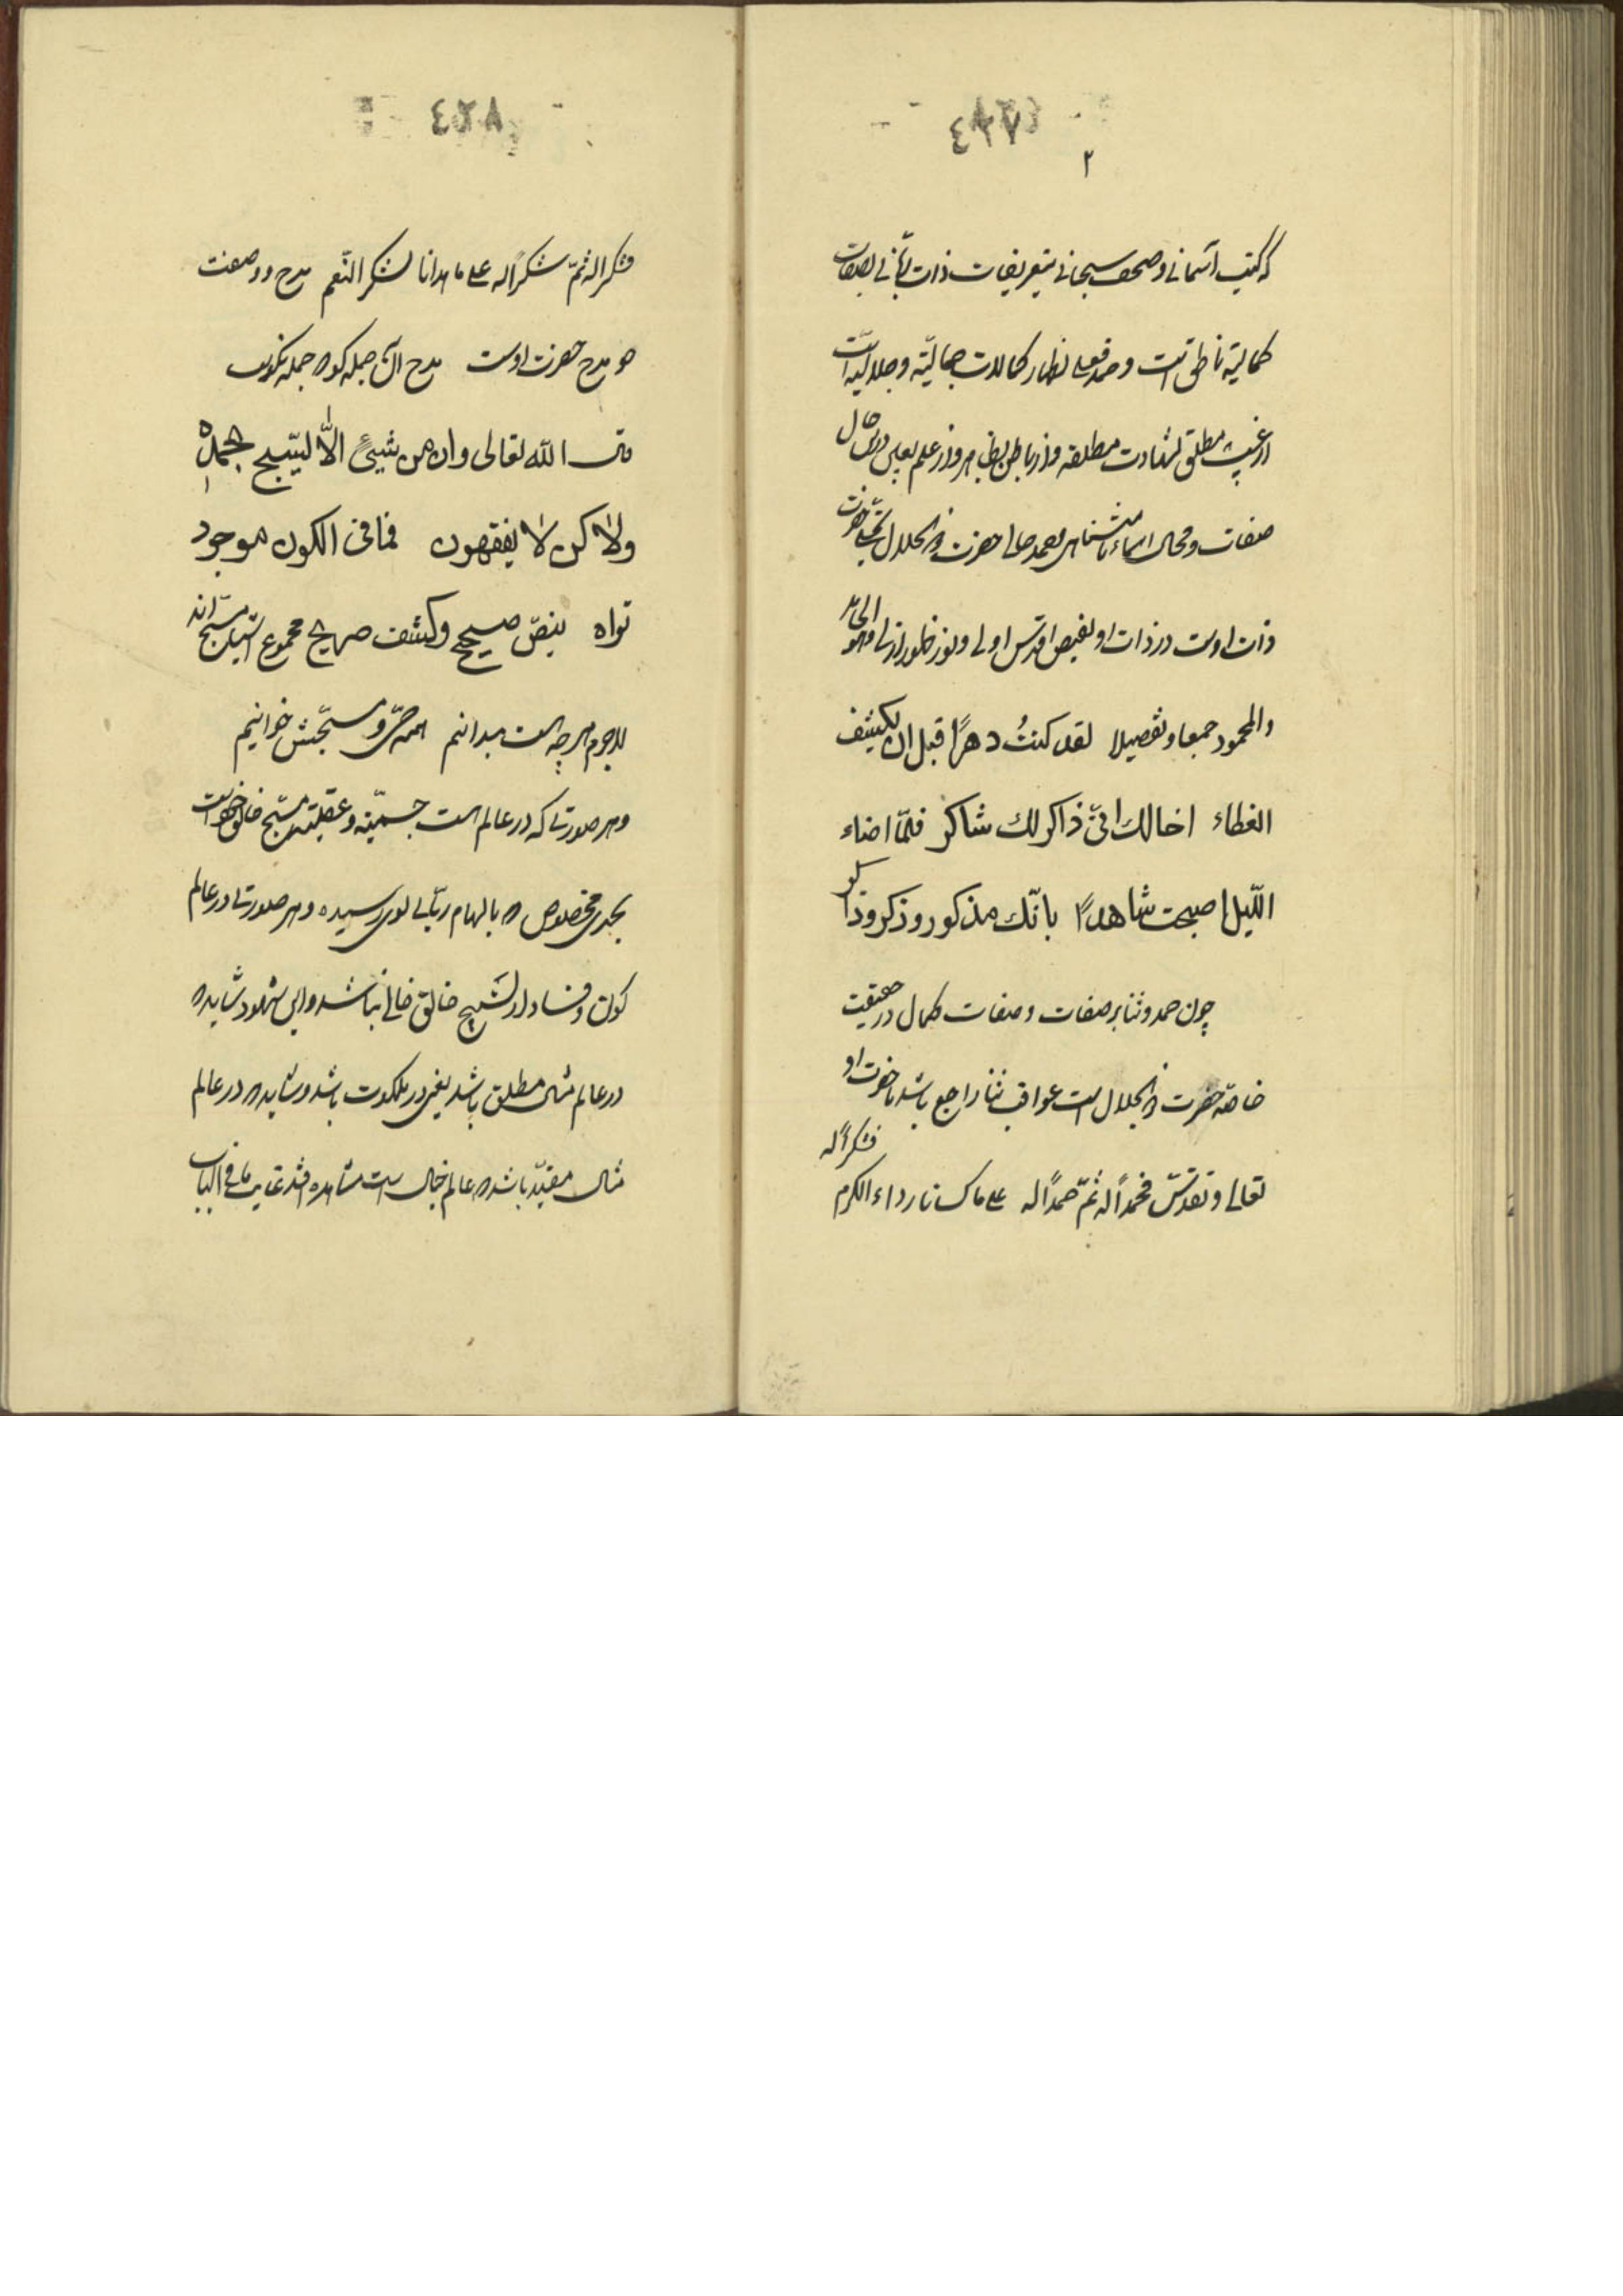 ٤٢٧
٢
که کتب آسمانی و صحف سبحانی بتعریفات ذات ربانی بصفات
کمالیه ناطق است و حمد فعلی اظهار کمالات جمالیّه و جلالیّه است
از غیب مطلق بشهادت مطلقه و از باطن بظاهر و از علم بعین در
صفات و محال اسماء نامتناهی حمد حالی حضرت ذوالجلال تجلیات
ذات اوست در ذات او بفیض اقدس اولی و نور ظهور ازلی فهو الحامد
والمحمود جمعا و تفصیلا لقد کنتُ دهرًا قبل ان یکشف
الغطاء اخالك انّی ذاکر لك شاکر فلمّا اضاء
اللّیل اصبحت شاهدًا بانّك مذکور و ذکر و ذاکر
چون حمد و ثنا بر صفات و صفات کمال در حقیقت
خاصّه حضرت ذوالجلال است عواقب ثنا راجع باشد با حضرت او
تعالی و تقدّس فحمداً له ثمّ حمداً له علی ما کسانا رداء الکرم
فشکراً له
٤٢٨
فشکرا له ثمّ شکرًا له علی ما هدانا لشکر النّعم مدح و وصفت
چو مدح حضرت اوست مدح آن جمله گو که جمله نکوست
قال الله تعالی وان من شیئٍ الّا لیسّبح بحمده
ولاکن لا یفقهون فما فی الکون موجود
تراه بنصّ صحیح و کشف صریح مجموع اشیا مسبّح‌اند
لاجرم هر چه هست میدانیم همه حیّ و مسبّحش خوانیم
و هر صورتی که در عالم است جسمیّه و عقلیّه مسبّح خالق خود است
بحمدی مخصوص که بالهام ربّانی بوی رسیده و هر صورتی در عالم
کون و فساد از تسبیح خالق خالی نباشد و این شهود شاید که
در عالم مثال مطلق باشد یعنی در ملکوت باشد و شاید که در عالم
مثال مقیّد باشد که عالم خیال است مشاهده افتد غایب ما فی الباب